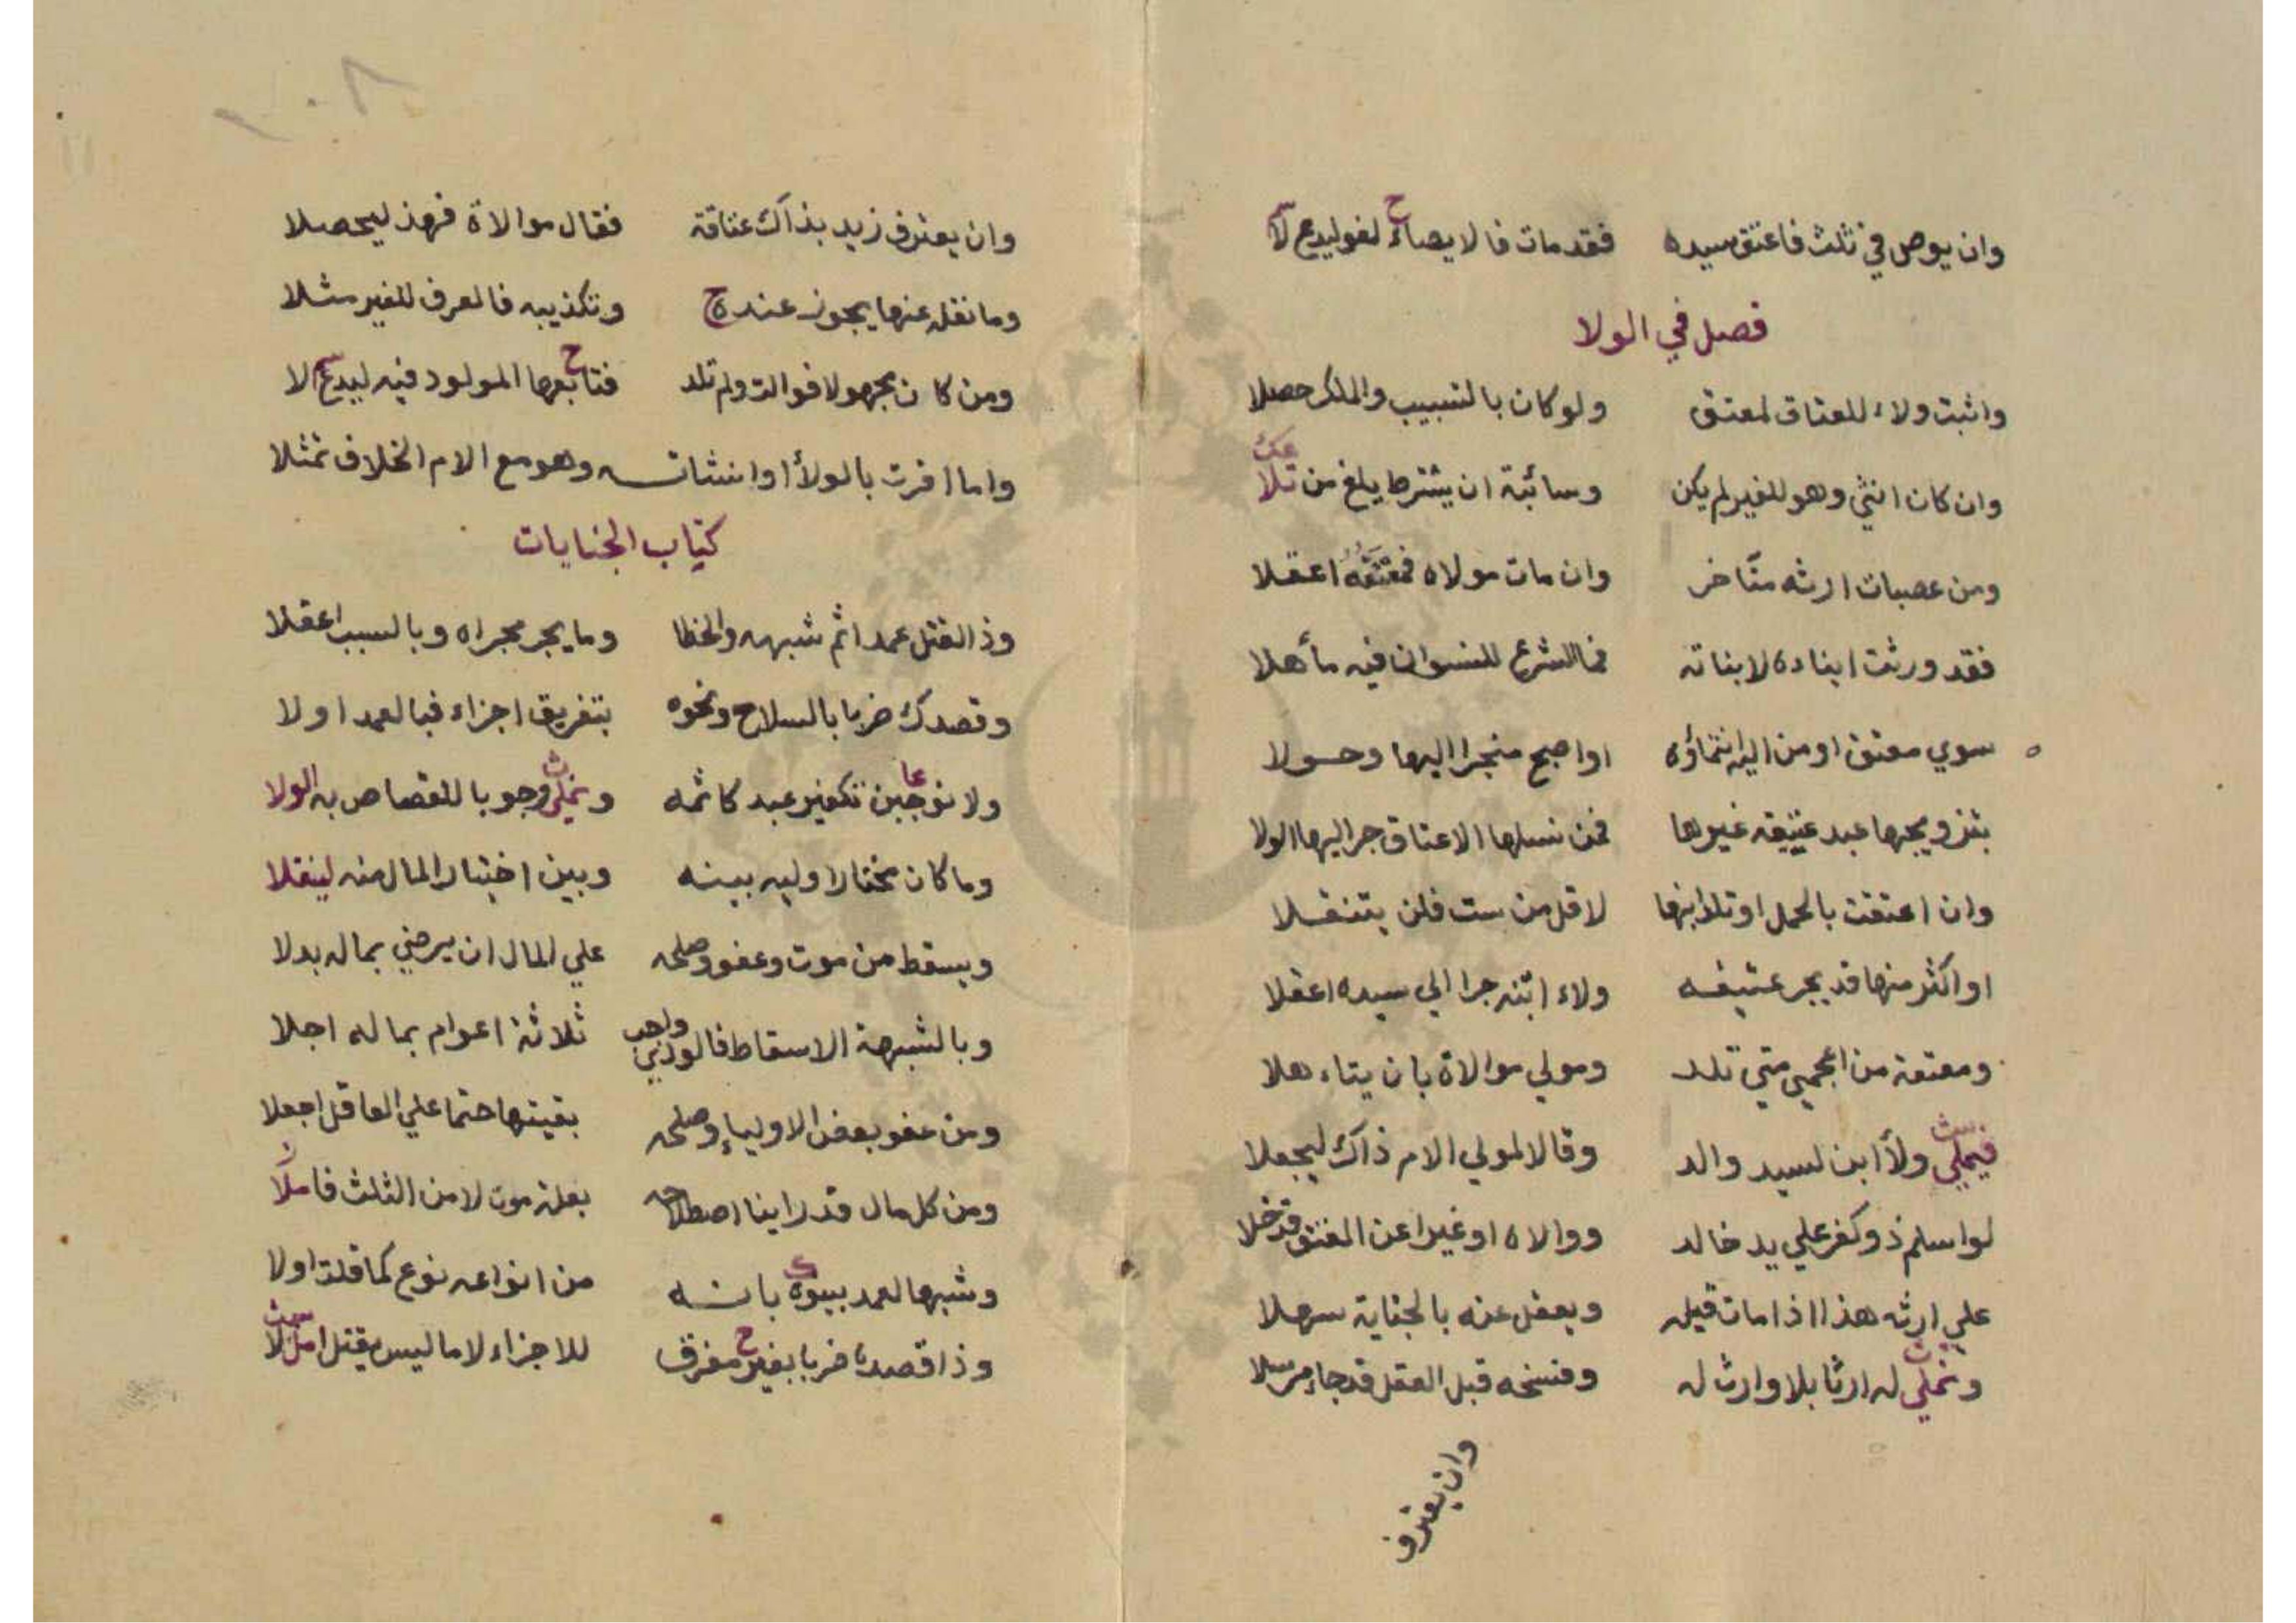 وان يوصل في ثلث فاعتق سيده فقد مات فالايصاء لغو ليدع لا
فصل في الولا
واثبت ولاء للعتاق لمعتق ولو كان بالتسبيب والملك حصلا
وان كان انثي وهو للغير لم يكن وسائبة ان يشترط يلغ من تلا
ومن عصبات ارثه متأخر وان مات مولاه فمعتقه اعقلا
فقد ورثت ابناده لا بناته فما الشرع للنسوان فيه مأهلا
سوي معتق او من اليه انتماؤه او اصبح منجرا اليها وحولا
بتزويجها عبد عتيقه غيرها فمن نسلها الاعتاق جر اليها الولا
وان اعتقت بالحمل او تلد ابنها لاقل من ست فلن يتنقلا
او اكثر منها قد يجر عتيقه ولاء ابنه جرا الي سيده اعقلا
ومعتقة من اعجمي متي تلد ومولي موالاة بان يتاهلا
فيملي ولأ ابن لسيد والد وقالا لمولي الام ذاك ليجعلا
لو اسلم ذو كفر علي يد خالد ووالاه او غيرا عن المعتق قد خلا
علي ارثه هذا اذا مات قبله ويعقل عنه بالجناية سهلا
ونملي له ارثا بلا وارث له وفسخه قبل العقل قد جاء مرسلا
وان يعترف
وان يعترف زيد بذاك عتاقة فقال موالاة فهذ ليحصلا
وما نقله عنها يجوز عنده وتكذيبه فالعرف للغير مثلا
ومن كان مجهولا فوالت ولم تلد فتابعها المولود فيه ليدع لا
واما اقرت بالولأ او انشات وهو مع الام الخلاف تمثلا
كتاب الجنايات
وذ القتل عمد اثم شبهه والخطا وما يجر مجراه وبالسبب اعقلا
وقصدك ضربا بالسلاح ونحوه بتفريق اجزاء فبالعمد اولا
ولا نوجبن تكفير عبد كاثمه ونملي وجوبا للقصاص به الولا
وما كان مختارا وليه بينه وبين اختيار المال منه لينقلا
ويسقط من موت وعفو وصلحه علي المال ان يرضي بماله بدلا
وبالشبهة الاسقاط فالودي واجب ثلاثة اعوام بماله اجلا
ومن عفو بعض الاولياء وصلحه بقيتها حتما علي العاقل اجعلا
ومن كل مال قد راينا اصطلاحه بعلة موت لا من الثلث فاملا
وشبهها لعمد ببيوه بانه من انواعه نوع كما قلت اولا
وذا قصده ضربا بغير مفرق للاجزاء لا ما ليس يقتل امثلا